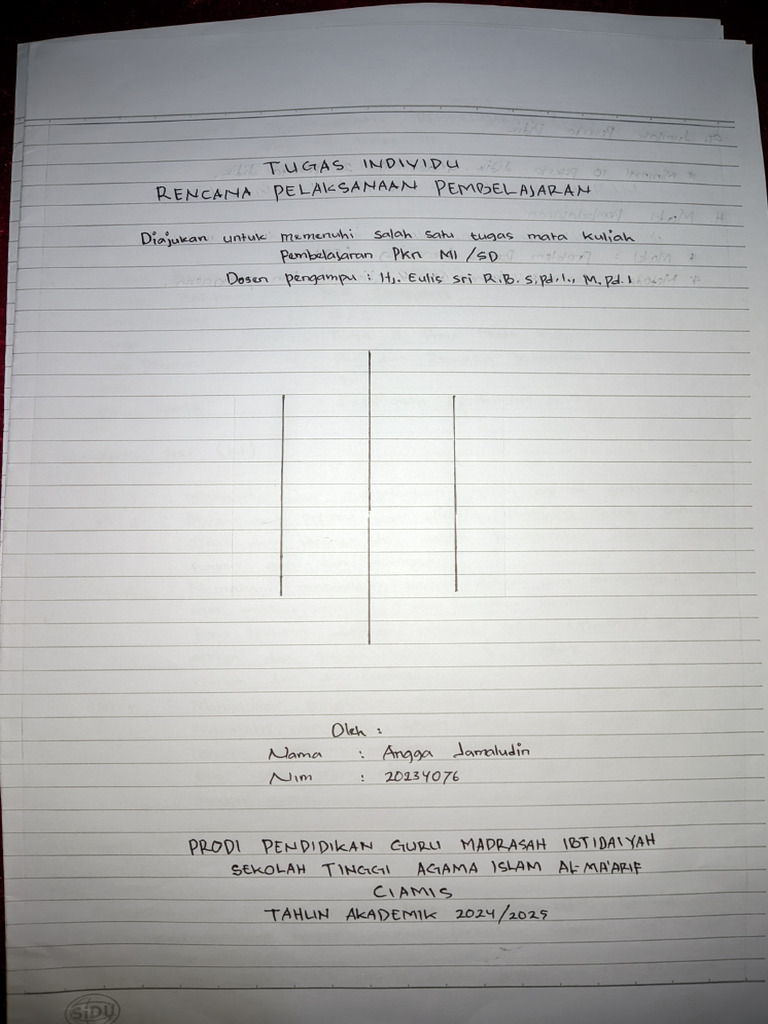 TUGAS INDIVIDU
RENCANA PELAKSANAAN PEMBELAJARAN
Diajukan untuk memenuhi salah satu tugas mata kuliah
Pembelajaran Pkn MI/SD
Dosen pengampu : Hj. Eulis Sri R.B. S.Pd.I., M.Pd.I
Oleh :
Nama : Angga Jamaludin
Nim : 20234076
PRODI PENDIDIKAN GURU MADRASAH IBTIDAIYAH
SEKOLAH TINGGI AGAMA ISLAM AL-MA'ARIF
CIAMIS
TAHUN AKADEMIK 2024/2025
SiDU